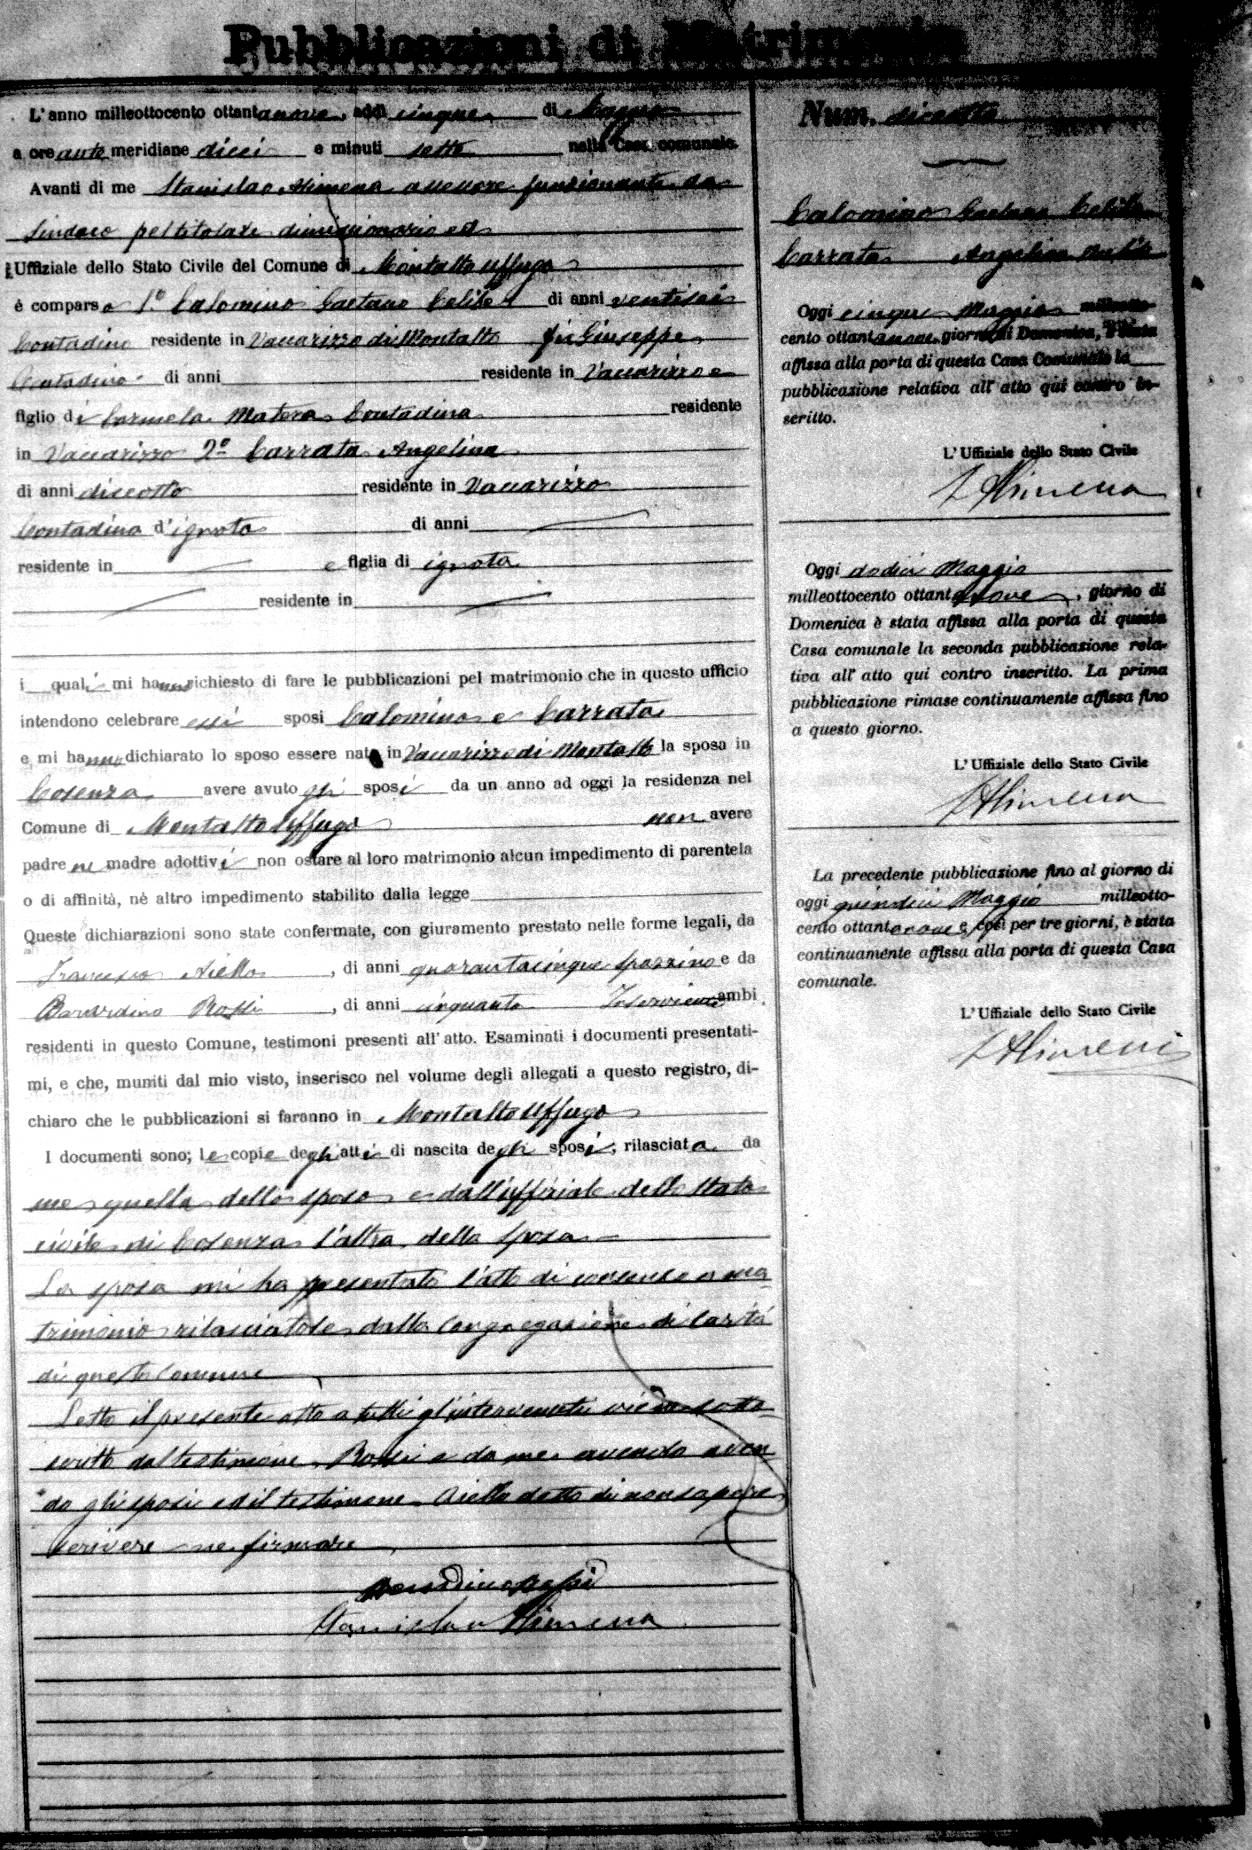 Pubblicazioni di Matrimonio
L'anno milleottocento ottantanove, addì cinque di Maggio
a ore ante meridiane dieci e minuti sette nella Casa comunale.
Avanti di me Stanislao Alimena assessore funzionante da
Sindaco pel titolare dimissionario ed
Uffiziale dello Stato Civile del Comune di Montalto Uffugo
è comparso 1.o Calomino Gaetano Celibe di anni ventisei
Contadino residente in Vaccarizzo di Montalto fu Giuseppe
Contadino di anni residente in Vaccarizzo e
figlio di Carmela Matera Contadina residente
in Vaccarizzo 2o Carrata Angelina
di anni diciotto residente in Vaccarizzo
Contadina d'ignoto di anni
residente in e figlia di ignota
residente in
i quali mi hanno richiesto di fare le pubblicazioni pel matrimonio che in questo ufficio
intendono celebrare essi sposi Calomino e Carrata
e mi hanno dichiarato lo sposo essere nato in Vaccarizzo di Montalto la sposa in
Cosenza avere avuto gli sposi da un anno ad oggi la residenza nel
Comune di Montalto Uffugo non avere
padre ne madre adottivi non ostare al loro matrimonio alcun impedimento di parentela
o di affinità, nè altro impedimento stabilito dalla legge
Queste dichiarazioni sono state confermate, con giuramento prestato nelle forme legali, da
Francesco Aiello, di anni quarantacinque spazzino e da
Bernardino Rossi, di anni cinquanta Inserviente ambi
residenti in questo Comune, testimoni presenti all'atto. Esaminati i documenti presentati-
mi, e che, muniti dal mio visto, inserisco nel volume degli allegati a questo registro, di-
chiaro che le pubblicazioni si faranno in Montalto Uffugo
I documenti sono; le copie degli atti di nascita degli sposi, rilasciata da
me quella dello sposo e dall'uffiziale dello stato
civile di Cosenza l'altra della sposa
La sposa mi ha presentato l'atto di consenso a ma
trimonio rilasciatole dalla Congregazione di Carità
di questo Comune
Letto il presente atto a tutti gl'intervenuti viene sotto
scritto dal testimone Rossi e da me avendo aven
do gli sposi ed il testimone Aiello detto di non sapere
scrivere ne firmare
Bernardino Rossi
Stanislao Alimena
Numero. diciotto
Calomino Gaetano Celibe
Carrata Angelina nubile
Oggi cinque Maggio milleotto-
cento ottantanove giorno di Domenica, è stata
affissa alla porta di questa Casa Comunale la
pubblicazione relativa all'atto qui contro in-
scritto.
L'Uffiziale dello Stato Civile
S Alimena
Oggi dodici Maggio
milleottocento ottantanove, giorno di
Domenica è stata affissa alla porta di questa
Casa comunale la seconda pubblicazione rela-
tiva all'atto qui contro inscritto. La prima
pubblicazione rimase continuamente affissa fino
a questo giorno.
L'Uffiziale dello Stato Civile
S Alimena
La precedente pubblicazione fino al giorno di
oggi quindici Maggio milleotto-
cento ottantanove e così per tre giorni, è stata
continuamente affissa alla porta di questa Casa
comunale.
L'Uffiziale dello Stato Civile
S Alimena